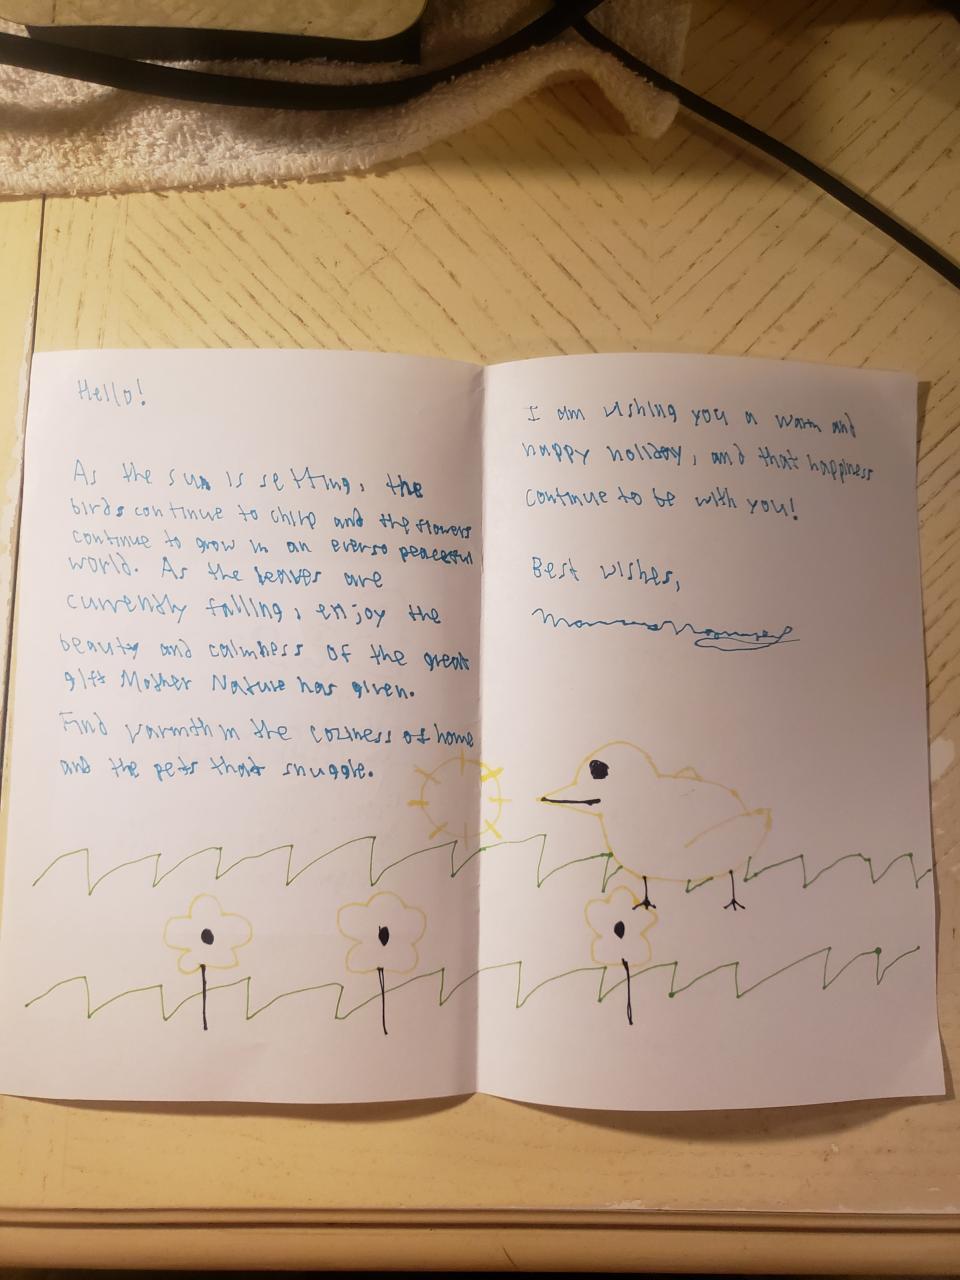 Hello!
As the sun is setting, the
birds continue to chirp and the flowers
continue to grow in an ever so peaceful
world. As the leaves are
currently falling, enjoy the
beauty and calmness of the great
gift Mother Nature has given.
Find warmth in the coziness of home
and the pets that snuggle.
I am wishing you a warm and
happy holiday, and that happiness
continue to be with you!
Best wishes,